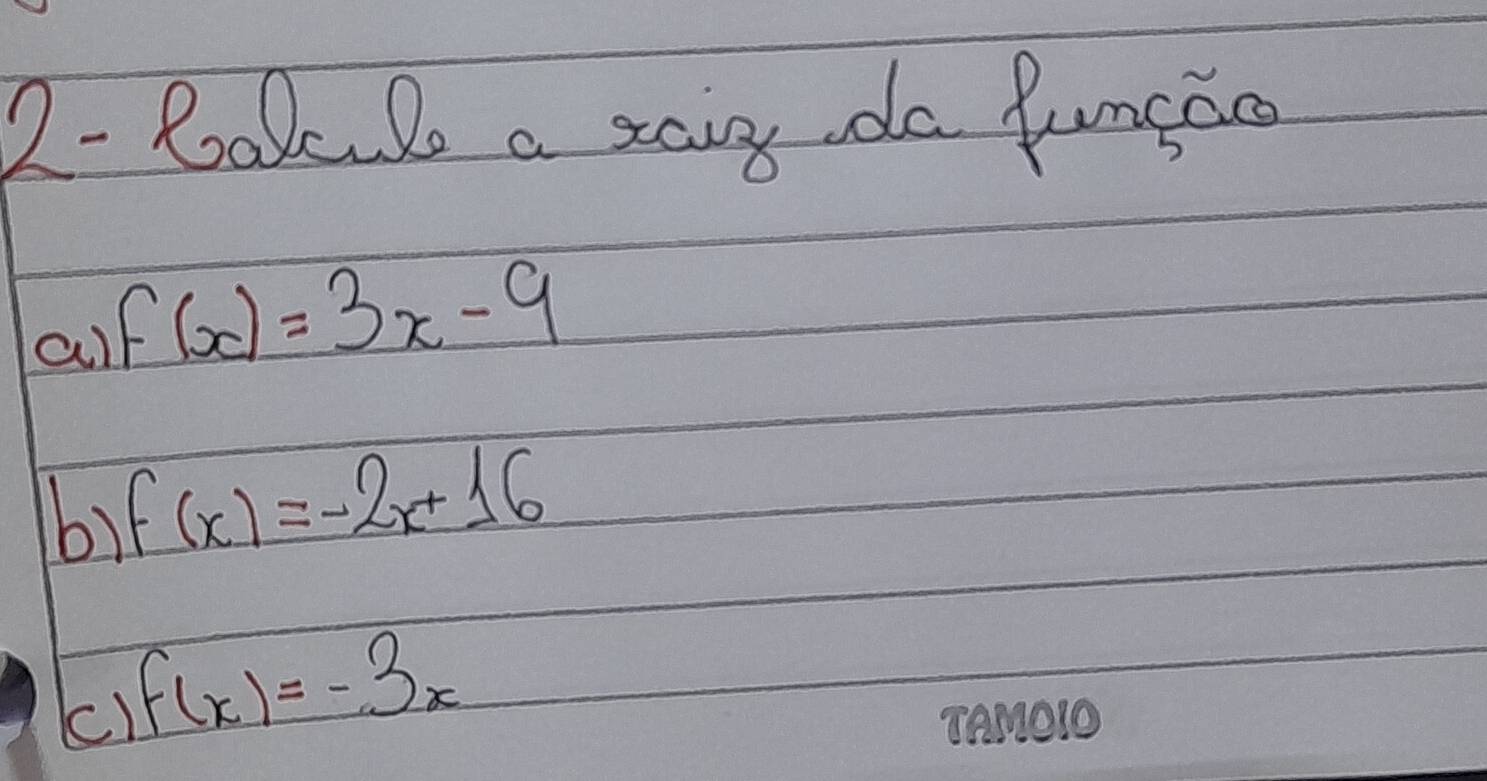 2- Calcule a raiz da função
a) f(x) = 3x - 9
b) f(x) = -2x + 16
c) f(x) = -3x
TAMOIO